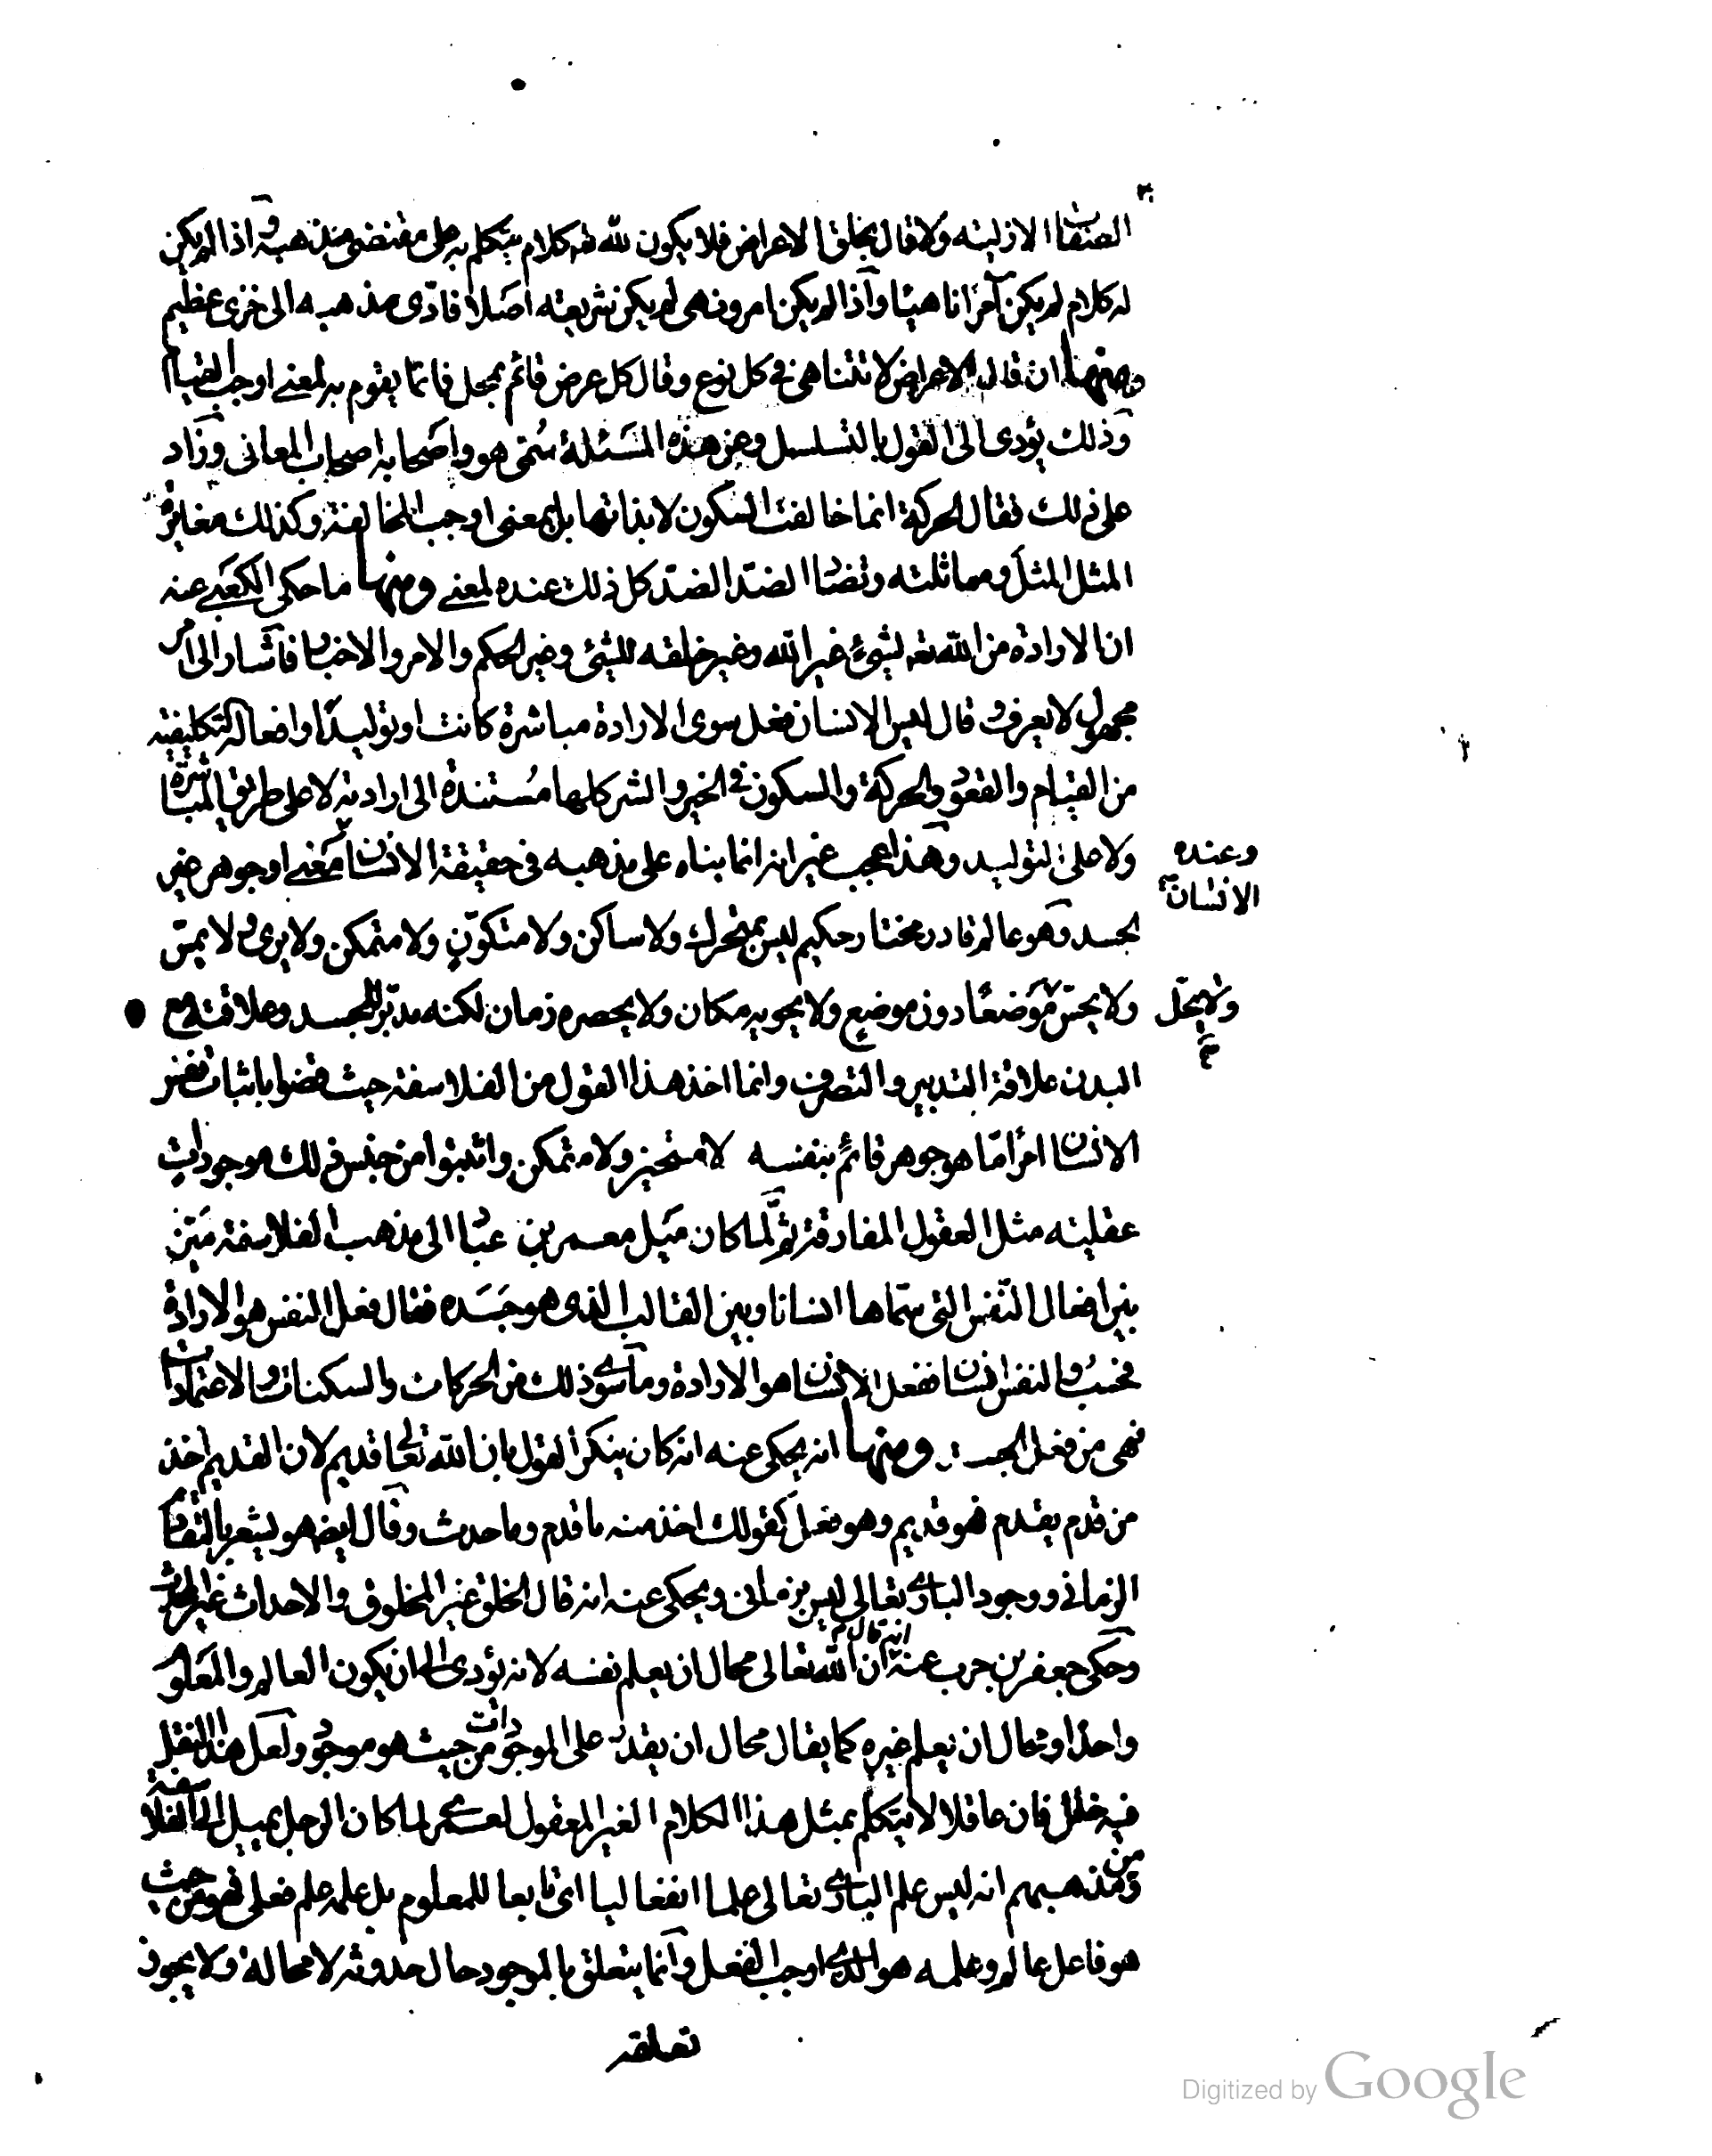 الصفات الازلية ولا قال بخلق الاعراض فلا يكون لله تعه كلام يتكلم به على مقتضى مذهبه واذا لم يكن
له كلام لم يكن آمرا ناهيا واذا لم يكن امر ونهى لم يكن شريعة اصلا فادّى مذهبه الى خزى عظيم
ومنها ان قال الاعراض لا تتناهى فى كل نوع وقال كل عرض قائم بمحل فانما يقوم به لمعنى اوجب القيام
وذلك يؤدى الى القول بالتسلسل وعن هذه المسئلة سُمّى هو واصحابه اصحاب المعانى وزاد
على ذلك فقال الحركة انما خالفت السكون لا بذاتها بل بمعنى اوجب المخالفة وكذلك مغايرة
المثل المثل ومماثلته وتضاد الضد الضد كل ذلك عنده لمعنى ومنها ما حكى الكعبى عنه
ان الارادة من الله تعه لشئ غير الله وغير خلقه للشئ وغير الحكم والامر والاخبار فاشار الى امر
مجهول لا يعرف وقال ليس للانسان فعل سوى الارادة مباشرة كانت او توليدًا وافعاله التكليفية
من القيام والقعود والحركة والسكون فى الخير والشر كلها مُستندة الى ارادته لا على طريق المباشرة
ولا على التوليد وهذا عجب غير انه انما بناه على مذهبه فى حقيقة الانسان معنى او جوهر غير
وعنده
الانسان
الجسد وهو عالم قادر مختار حكيم ليس بمتحرك ولا ساكن ولا متكوّن ولا متمكن ولا يرى ولا يمسّ
ولا يحسّ موضعًا دون موضع ولا يحويه مكان ولا يحصره زمان لكنه مدبّر للجسد وعلاقته مع
ولا يحلّ
البدن علاقة التدبير والتصرف وانما اخذ هذا القول من الفلاسفة حيث قضوا باثبات نفس
الانسان امرًا مّا هو جوهر قائم بنفسه لا متحيز ولا متمكن واثبتوا من جنس ذلك موجودات
عقلية مثل العقول المفارقة ثم لمّا كان ميل معمر بن عباد الى مذهب الفلاسفة ميّز
بين افعال النفس التى سمّاها انسانا وبين القالب الذى هو جَسَده فقال فعل النفس هو الارادة
فحسبُ والنفس انسان ففعل الانسان هو الارادة وما سوى ذلك من الحركات والسكنات والاعتمادات
فهى من فعل الجسد ومنها انه يحكى عنه انه كان ينكر القول بان الله تعالى قديم لان القديم اخذ
من قدم يقدم فهو قديم وهو فعل كقولك اخذ منه ما قدم وما حدث وقال ايضه هو يشعر بالتقادم
الزمانى ووجود البارى تعالى ليس بزمانى ويحكى عنه انه قال الخلق غير المخلوق والاحداث غير المحدث
وحكى جعفر بن حرب عنه انه قال ان الله تعالى محال ان يعلم نفسه لانه يؤدى الى ان يكون العالم والمعلوم
واحدًا ومحال ان يعلم غيره كما يقال محال ان يقدر على الموجود من حيث هو موجود ولعل هذا النقل
فيه خلل فان عاقلا لا يتكلم بمثل هذا الكلام الغير المعقول لعمرى لما كان الرجل يميل الى الفلاسفة
ومن مذهبهم انه ليس علم البارى تعالى علما انفعاليا اى تابعا للمعلوم بل علمه علم فعلى فهو من حيث
هو فاعل عالم وعلمه هو الذى اوجب الفعل وانما يتعلق بالموجود حال حدوثه لا محالة ولا يجوز
تعلقه
Digitized by Google